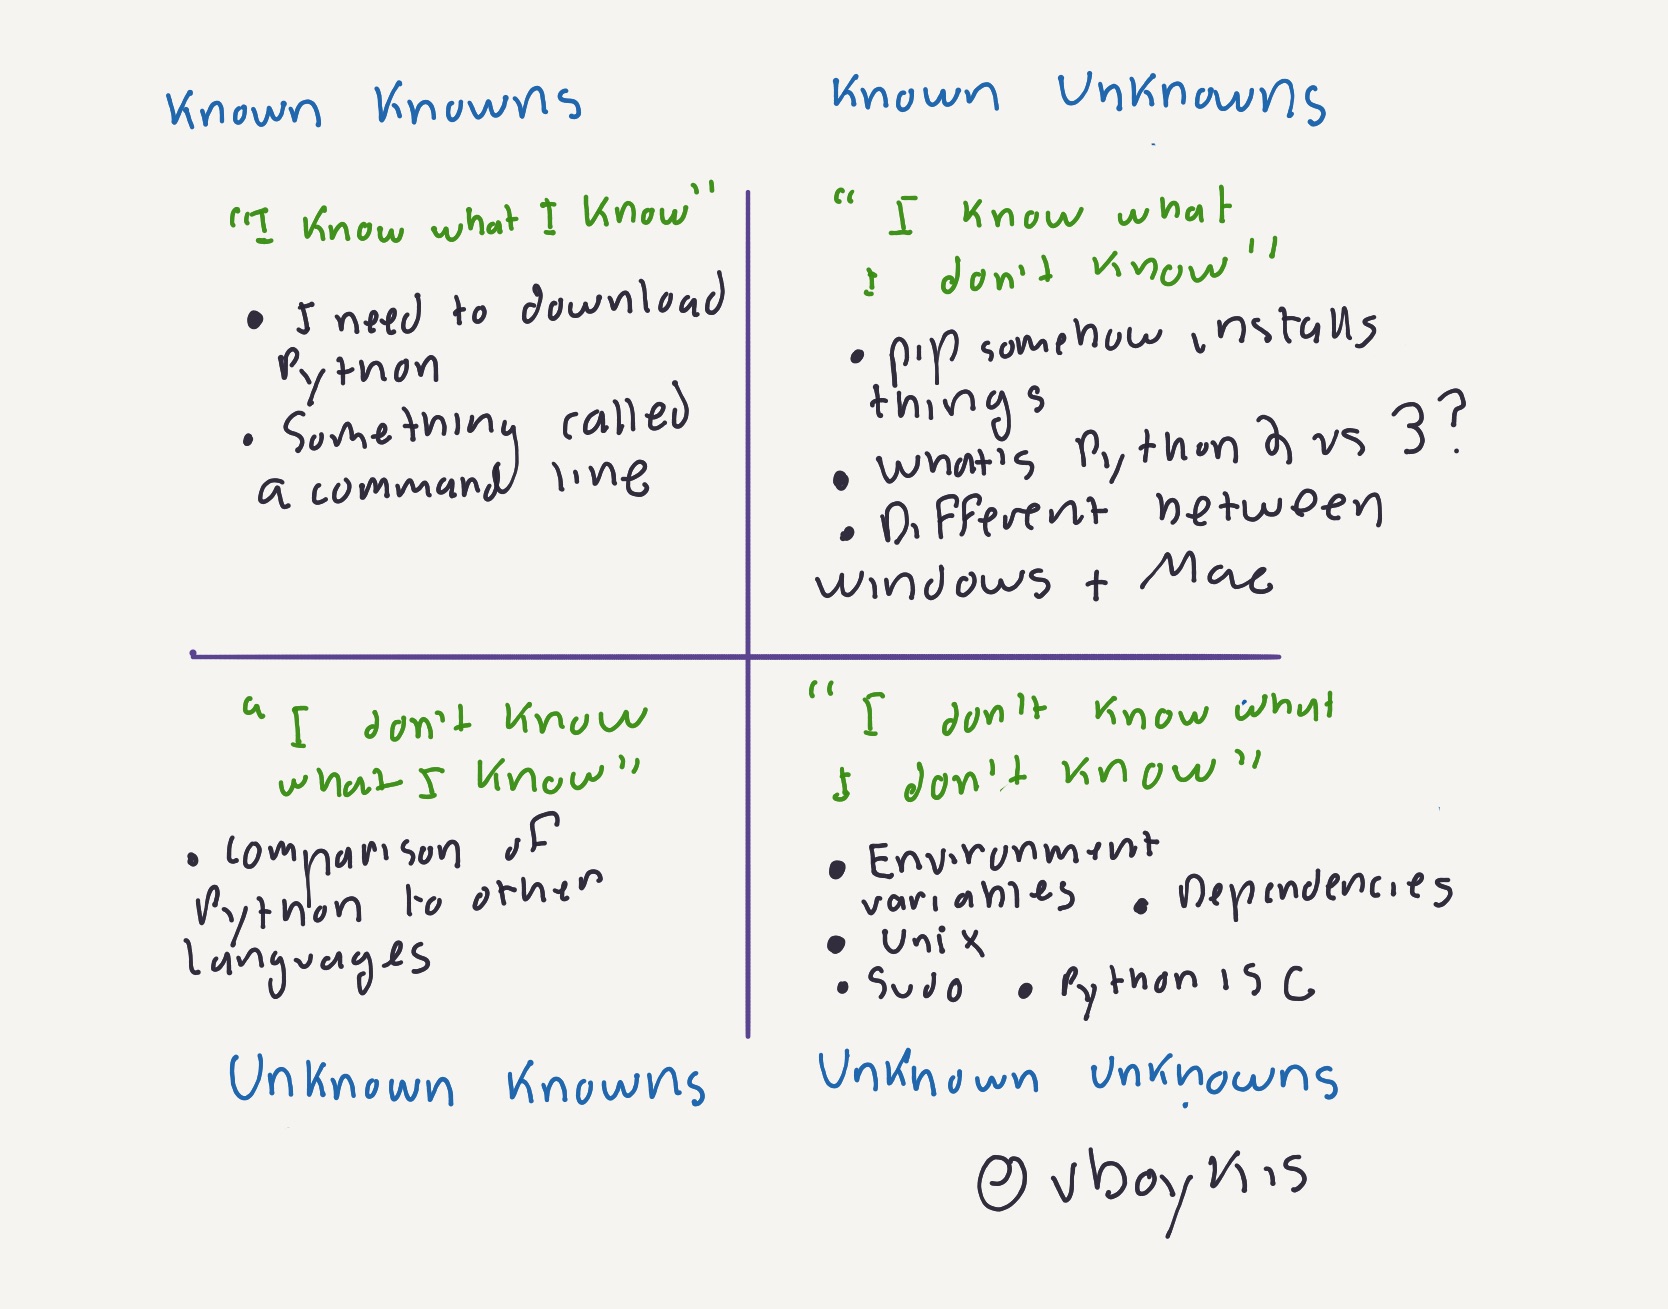 Known Knowns
"I know what I know"
• I need to download
Python
• Something called
a command line
Known Unknowns
"I know what
I don't know"
• pip somehow installs
things
• What's Python 2 vs 3?
• Different between
windows + Mac
"I don't know
what I know"
• Comparison of
Python to other
languages
Unknown Knowns
"I don't know what
I don't know"
• Environment
variables • Dependencies
• Unix
• Sudo • Python is C
Unknown unknowns
@vboykis